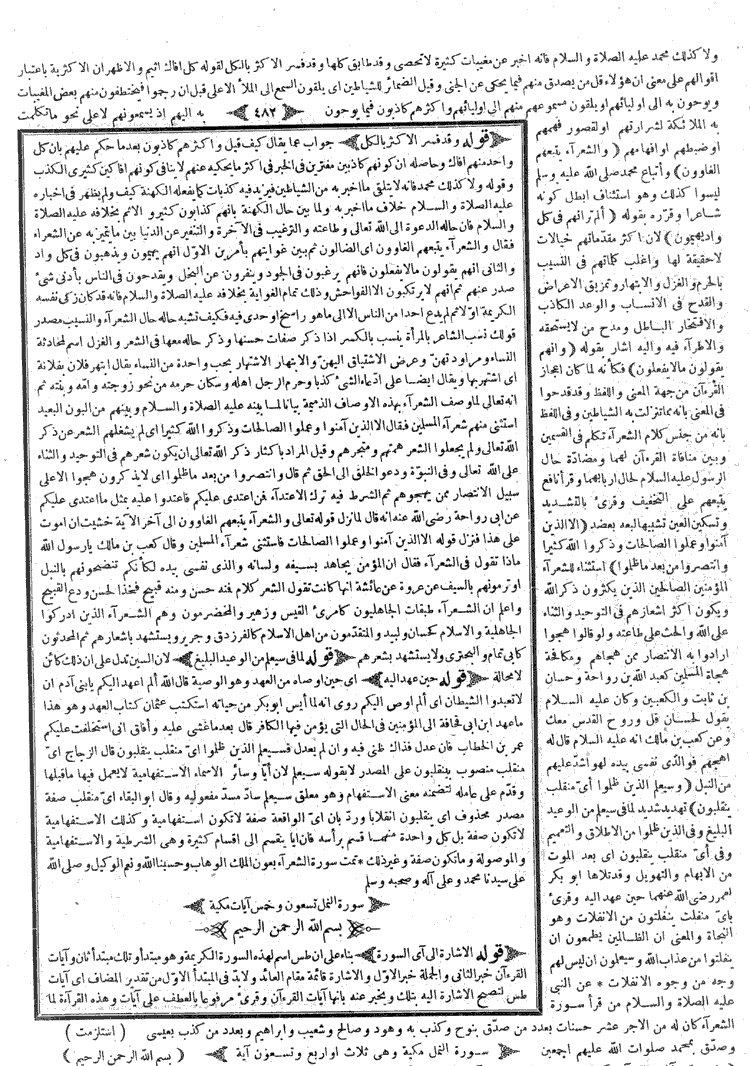 ولا كذلك محمد عليه الصلاة والسلام فانه اخبر عن مغيبات كثيرة لا تحصى وقد طابق كلها وقد فسر الاكثر بالكل لقوله كل افاك اثيم والاظهر ان الاكثرية باعتبار
اقوالهم على معنى ان هؤلاء قل من يصدق منهم فيما يحكى عن الجنى وقيل الضمائر للشياطين اى يلقون السمع الى الملأ الاعلى قبل ان رجموا فيختطفون منهم بعض المغيبات
ويوحون به الى اوليائهم او يلقون مسموعهم منهم الى اوليائهم واكثرهم كاذبون فيما يوحون ﴿ ٤٨٢ ﴾ به اليهم اذ يسمعونهم لا على نحو ما تكلمت
به الملائكة لشرارتهم او لقصور فهمهم
او ضبطهم او افهامهم (والشعرآء يتبعهم
الغاوون) وأتباع محمد صلى الله عليه وسلم
ليسوا كذلك وهو استئناف ابطل كونه
شاعرا وقرّره بقوله (ألم تر انهم فى كل
واد يهيمون) لان اكثر مقدّماتهم خيالات
لا حقيقة لها واغلب كلماتهم فى النسيب
بالحرم والغزل والابتهار وتمزيق الاعراض
والقدح فى الانساب والوعد الكاذب
والافتخار الباطل ومدح من لا يستحقه
والاطرآء فيه واليه اشار بقوله (وانهم
يقولون مالا يفعلون) فكأنه لما كان اعجاز
القرءآن من جهة المعنى واللفظ وقد قدحوا
فى المعنى بانه مما تنزلت به الشياطين وفى اللفظ
بانه من جنس كلام الشعرآء تكلم فى القسمين
وبين منافاة القرءآن لهما ومضادّة حال
الرسول عليه السلام لحال اربابهما وقرأ نافع
يتبعهم على التخفيف وقرئ بالتشديد
وتسكين العين تشبيها لبعه بعضد (الا الذين
آمنوا وعملوا الصالحات وذكروا الله كثيرا
وانتصروا من بعد ما ظلموا) استثناء للشعرآء
المؤمنين الصالحين الذين يكثرون ذكر الله
ويكون اكثر اشعارهم فى التوحيد والثناء
على الله والحث على طاعته ولو قالوا هجوا
ارادوا به الانتصار ممن هجاهم ومكافحة
هجاة المسلمين كعبد الله بن رواحة وحسان
بن ثابت والكعبين وكان عليه السلام
يقول لحسان قل وروح القدس معك
وعن كعب بن مالك انه عليه السلام قال له
اهجهم فوالذى نفسى بيده لهو أشدّ عليهم
من النبل (وسيعلم الذين ظلوا أىّ منقلب
ينقلبون) تهديد شديد لما فى سيعلم من الوعيد
البليغ وفى الذين ظلوا من الاطلاق والتعميم
وفى أىّ منقلب ينقلبون اى بعد الموت
من الابهام والتهويل وقد تلاها ابو بكر
لعمر رضى الله عنهما حين عهد اليه وقرئ
باىّ منفلت ينفلتون من الانفلات وهو
النجاة والمعنى ان الظالمين يطمعون ان
ينفلتوا من عذاب الله وسيعلمون ان ليس لهم
وجه من وجوه الانفلات * عن النبى
عليه الصلاة والسلام من قرأ سورة
﴿ قوله وقد فسر الاكثر بالكل ﴾ جواب عما يقال كيف قيل واكثرهم كاذبون بعد ما حكم عليهم بان كل
واحد منهم افاك وحاصله ان كونهم كاذبين مفترين فى الخبر فى اكثر ما يحكيه عنهم لا ينافى كونهم افاكين كثيرى الكذب
وقوله ولا كذلك محمد فانه لا يتلقى ما اخبر به من الشياطين فيزيد فيه كذبات كما يفعله الكهنة كيف ولم يظهر فى اخباره
عليه الصلاة والسلام خلاف ما اخبر به ولما بين حال الكهنة بانهم كذابون كثيرو الاثم بخلافه عليه الصلاة
والسلام فان حاله الدعوة الى الله تعالى وطاعته والترغيب فى الآخرة والتنفير عن الدنيا بين ما يتميز به عن الشعراء
فقال والشعرآء يتبعهم الغاوون اى الضالون ثم بين غوايتهم بأمرين الاوّل انهم يهيمون ويذهبون فى كل واد
والثانى انهم يقولون مالا يفعلون فانهم يرغبون فى الجود وينفرون عن البخل ويقدحون فى الناس بأدنى شئ
صدر عنهم ثم انهم لا يرتكبون الا الفواحش وذلك تمام الغواية بخلافه عليه الصلاة والسلام فانه قد كان زكى نفسه
الكريمة اوّلا ثم لم يدع احدا من الناس الا الى ما هو راسخ اوحدى فيه فكيف تشبه حاله حال الشعرآء والنسيب مصدر
قولك نسب الشاعر بالمرأة ينسب بالكسر اذا ذكر صفات حسنها وذكر حاله معها فى الشعر والغزل اسم لمحادثة
النساء ومراودتهن وعرض الاشتياق اليهن والابتهار الاشتهار بحب واحدة من النساء يقال ابتهر فلان بفلانة
اى اشتهر بها ويقال ايضا على ادّعاء الشئ كذبا وحرم الرجل اهله وسكان حرمه من نحو زوجته وامّه وبنته ثم
انه تعالى لما وصف الشعرآء بهذه الاوصاف الذميمة بيانا لما بينه عليه الصلاة والسلام وبينهم من البون البعيد
استثنى منهم شعرآء المسلمين فقال الا الذين آمنوا وعملوا الصالحات وذكروا الله كثيرا اى لم يشغلهم الشعر عن ذكر
الله تعالى ولم يجعلوا الشعر همتهم ومتجرهم وقيل المراد باكثار ذكر الله تعالى ان يكون شعرهم فى التوحيد والثناء
على الله تعالى وفى النبوّة ودعو الخلق الى الحق ثم قال وانتصروا من بعد ما ظلموا اى لا يذكرون هجوا الا على
سبيل الانتصار ممن يهجوهم ثم الشرط فيه ترك الاعتدآء فمن اعتدى عليكم فاعتدوا عليه بمثل ما اعتدى عليكم
عن ابى رواحة رضى الله عنه انه قال لما نزل قوله تعالى والشعرآء يتبعهم الغاوون الى آخر الآية خشيت ان اموت
على هذا فنزل قوله الا الذين آمنوا وعملوا الصالحات فاستثنى شعرآء المسلمين وقال كعب بن مالك يارسول الله
ماذا تقول فى الشعرآء فقال ان المؤمن يجاهد بسيفه ولسانه والذى نفسى بيده لكأنكم تنضحونهم بالنبل
او ترمونهم بالسيف عن عروة عن عائشة انها كانت تقول الشعر كلام فمنه حسن ومنه قبيح فخذ الحسن ودع القبيح
واعلم ان الشعرآء طبقات الجاهليون كامرئ القيس وزهير والمخضرمون وهم الشعرآء الذين ادركوا
الجاهلية والاسلام كحسان ولبيد والمتقدّمون من اهل الاسلام كالفرزدق وجرير ويستشهد باشعارهم ثم المحدثون
كابى تمام والبحترى ولا يستشهد بشعرهم ﴿ قوله لما فى سيعلم من الوعيد البليغ ﴾ لان السين تدل على ان ذلك كائن
لا محالة ﴿ قوله حين عهد اليه ﴾ اى حين اوصاه من العهد وهو الوصية قال الله ألم اعهد اليكم يابنى آدم ان
لا تعبدوا الشيطان اى ألم اوص اليكم روى انه لما أيس ابو بكر من حياته استكتب عثمان كتاب العهد وهو هذا
ما عهد ابن ابى قحافة الى المؤمنين فى الحال التى يؤمن فيها الكافر قال بعد ما غشى عليه وأفاق انى استخلفت عليكم
عمر بن الخطاب فان عدل فذاك ظنى فيه وان لم يعدل فسيعلم الذين ظلوا اىّ منقلب ينقلبون قال الزجاج اىّ
منقلب منصوب بينقلبون على المصدر لا بقوله سيعلم لان أيّا وسائر الاسماء الاستفهامية لا يعمل فيها ما قبلها
وقدّم على عامله لتضمنه معنى الاستفهام وهو معلق سيعلم سادّ مسدّ مفعوليه وقال ابو البقاء اىّ منقلب صفة
مصدر محذوف اى ينقلبون انقلابا وردّ بان اىّ الواقعة صفة لا تكون استفهامية وكذلك الاستفهامية
لا تكون صفة بل كل واحدة منهما قسم برأسه فان ايّا ينقسم الى اقسام كثيرة وهى الشرطية والاستفهامية
والموصولة وما تكون صفة وغير ذلك * تمت سورة الشعرآء بعون الملك الوهاب وحسبنا الله ونعم الوكيل وصلى الله
على سيدنا محمد وعلى آله وصحبه وسلم
﴿ سورة النمل تسعون وخمس آيات مكية ﴾
﴿ بسم الله الرحمن الرحيم ﴾
﴿ قوله الاشارة الى آى السورة ﴾ بناء على ان طس اسم لهذه السورة الكريمة وهو مبتدأ وتلك مبتدأ ثان وآيات
القرءآن خبر الثانى والجملة خبر الاوّل والاشارة قائمة مقام العائد ولابدّ فى المبتدأ الاوّل من تقدير المضاف اى آيات
طس لتصح الاشارة اليه بتلك ويخبر عنه بانها آيات القرءآن وقرئ مرفوعا بالعطف على آيات وهذه القراءة لما
الشعرآء كان له من الاجر عشر حسنات بعدد من صدّق بنوح وكذب به وهود وصالح وشعيب وابراهيم وبعدد من كذب بعيسى ( استلزمت )
وصدّق بمحمد صلوات الله عليهم اجمعين ﴿ سورة النمل مكية وهى ثلاث او اربع وتسعون آية ﴾ ( بسم الله الرحمن الرحيم )